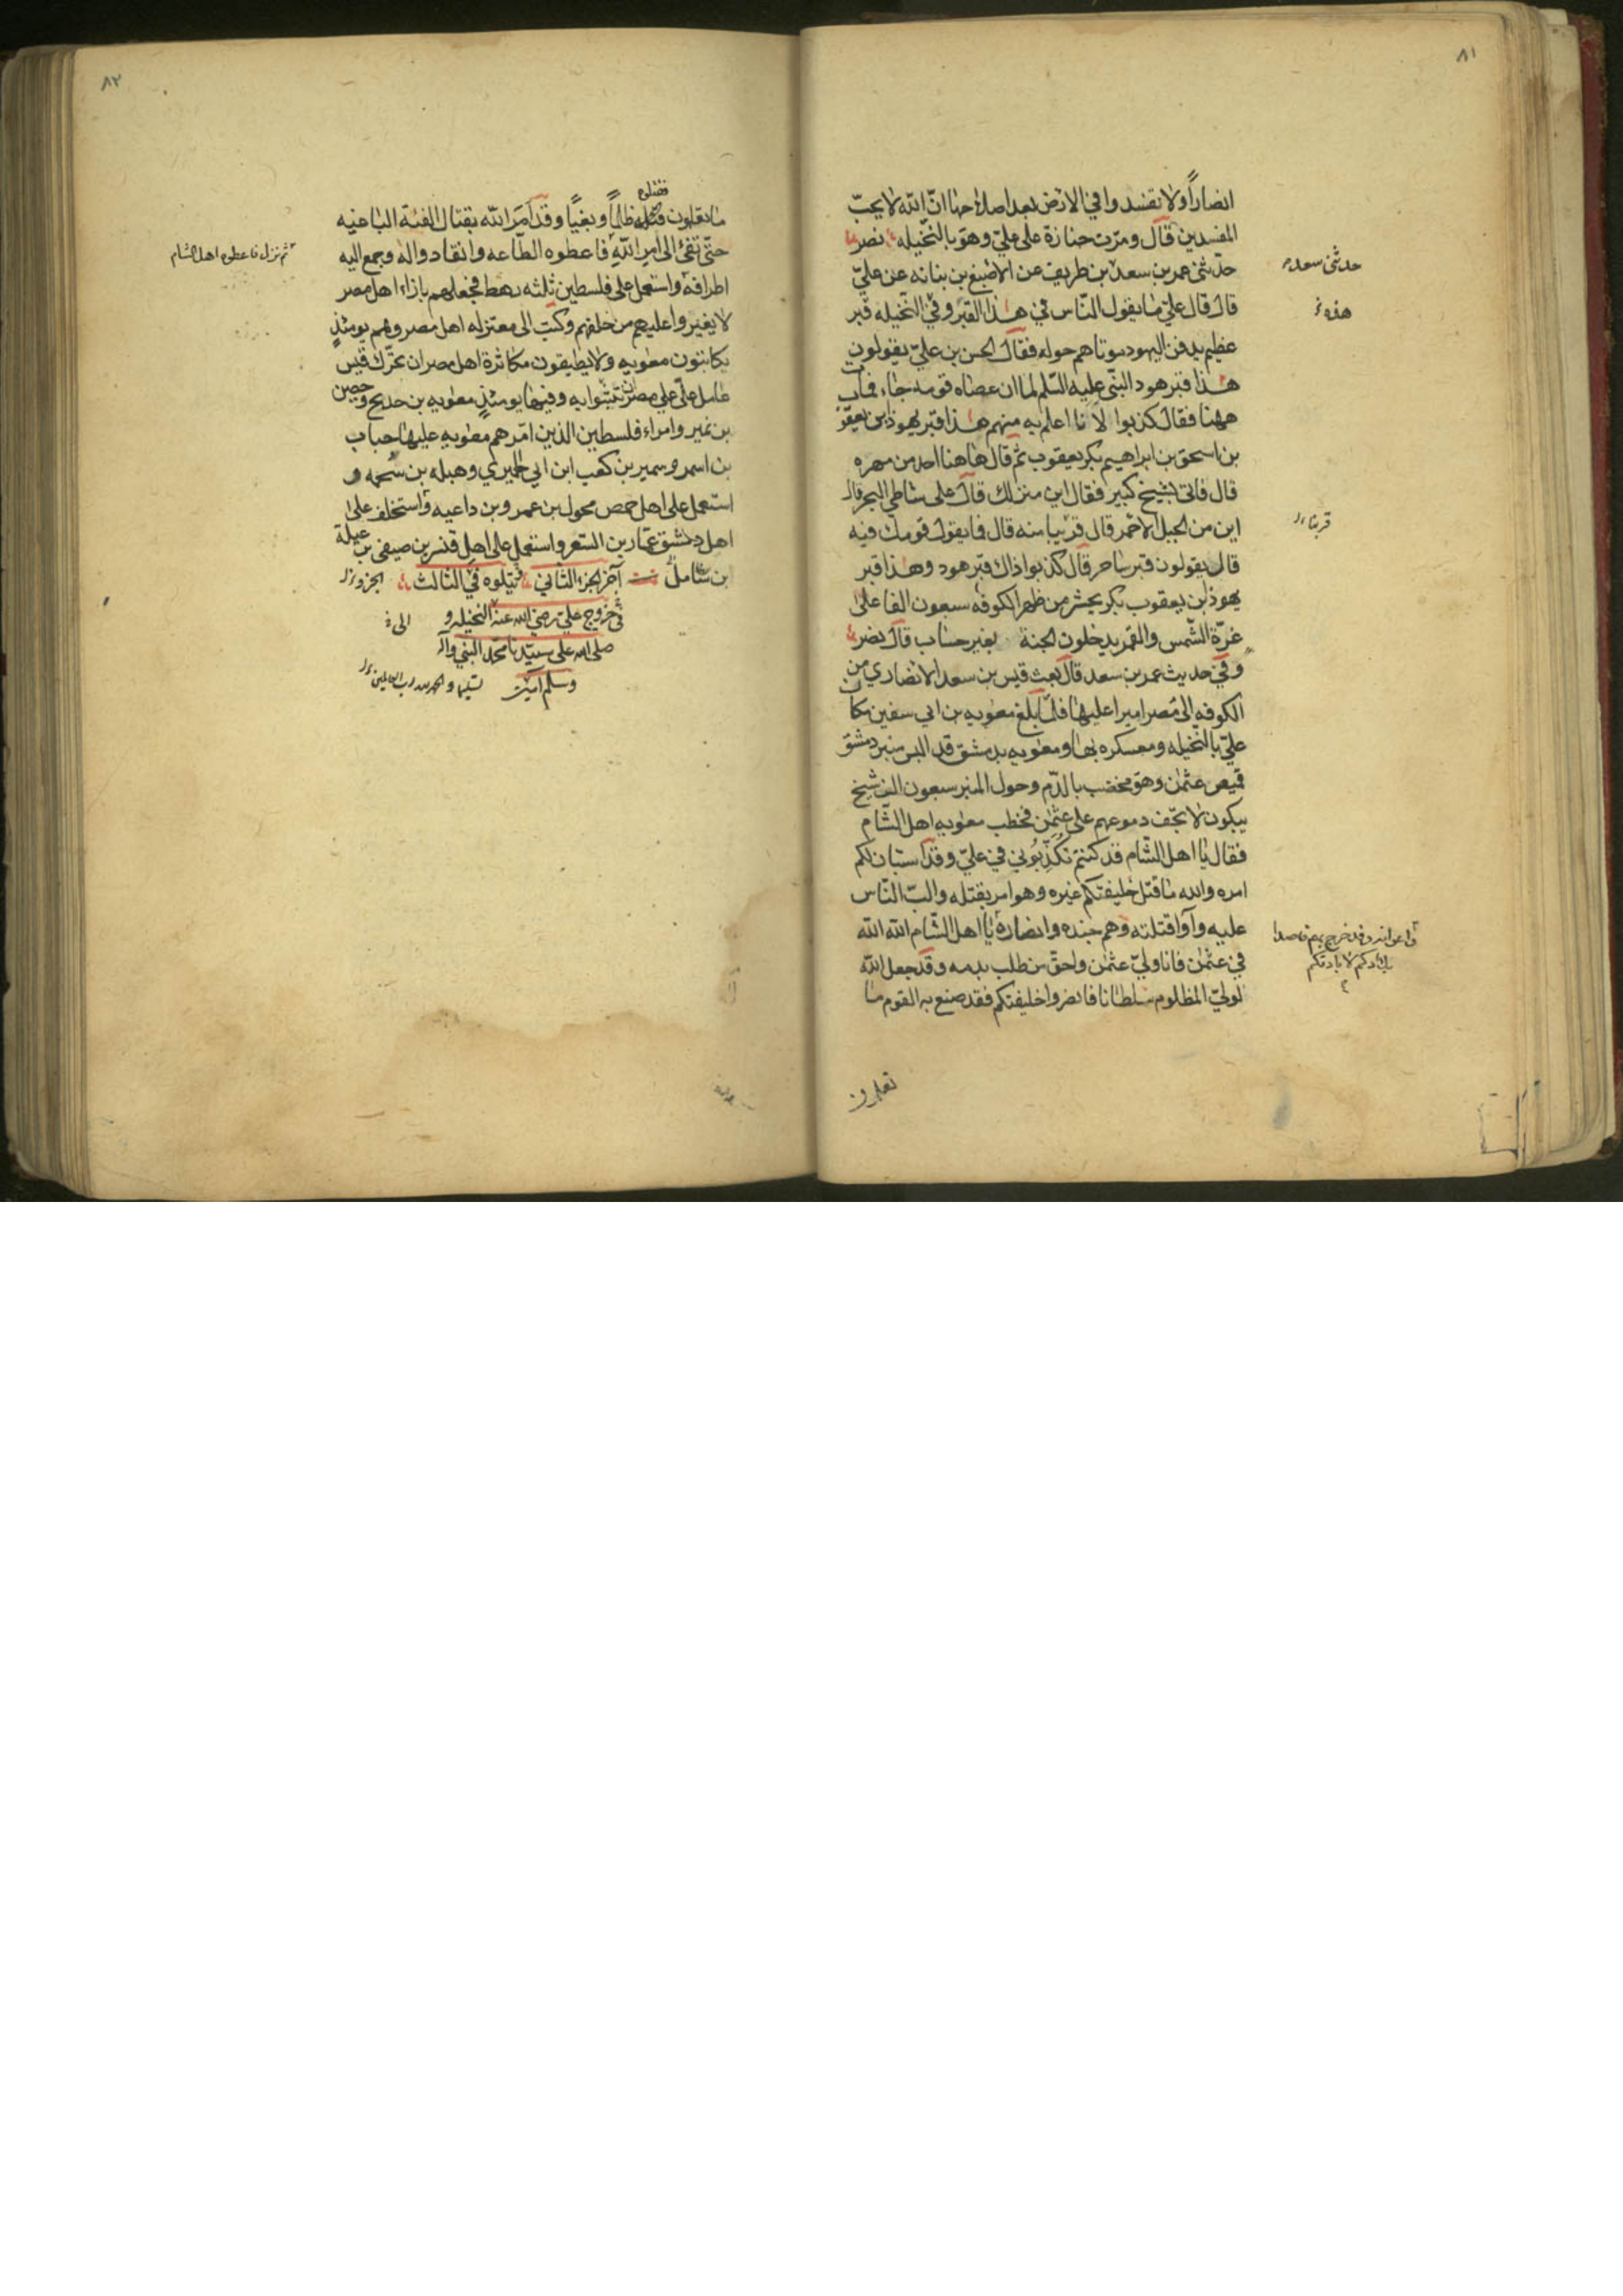 ٨١
انصاراً ولا تفسدوا في الارض بعد اصلاحها انّ الله لا يحبّ
المفسدين قال ومرّت جنازة على عليّ وهو بالنخيله نصر
حدّثنى عمر بن سعد بن طريف عن الاصبغ بن بنانه عن عليّ
حدثنى سعد
قال قال عليّ ما يقول النّاس في هذا القبر وفي النخيله قبر
هذه
عظيم يدفن اليهود موتاهم حوله فقال الحسن بن عليّ يقولون
هذا قبر هود النبّى عليه السّلم لما ان عصاه قومه جاء فمات
ههنا فقال كذبوا لانا اعلم به منهم هذا قبر يهوذا بن يعقو
بن اسحق بن ابراهيم بكر يعقوب ثم قال هاهنا احد من مهره
قال فاتى بشيخ كبير فقال اين منزلك قال على شاطي البحر قال
اين من الجبل الاحمر قال قريبا منه قال فما يقول قومك فيه
قريبا
قال يقولون قبر ساحر قال كذبوا ذاك قبر هود وهذا قبر
يهوذ ابن يعقوب بكر يحشر من ظهر الكوفه سبعون الفا على
غرّة الشّمس والقمر يدخلون الجنة بغير حساب قال نصر
وفي حديث عمر بن سعد قال بعث قيس بن سعد الانصاري من
الكوفه الى مصر اميرا عليها فلمّا بلغ معويه بن ابي سفين مكان
عليّ بالنخيله ومعسكره بها ومعويه بدمشق قد البس منبر دمشق
قميص عثمن وهو مخضب بالدّم وحول المنبر سبعون الف شيخ
يبكون لا تجّف دموعهم على عثمن فخطب معويه اهل الشّام
فقال يا اهل الشام قد كنتم تكذّبوني في عليّ وقد استبان لكم
امره والله ما قتل خليفتكم غيره وهو امر بقتله والبّ النّاس
عليه وآوا قتلته وهم جنده وانصاره يا اهل الشّام الله الله
واعوانه وقد خرج بهم قاصدا
بلادكم لابادتكم
في عثمن فانا وليّ عثمن واحق من طلب بدمه وقد جعل الله
لوليّ المظلوم سلطانا فانصروا خليفتكم فقد صنع به القوم ما
تعلمون
٨٢
ما تعلمون قتلوه ظلماً وبغيًا وقد امر الله بقتال الفئة الباغيه
فقتلوه
حتّى تفئ الى امر الله فاعطوه الطّاعه وانقادوا له وجمع اليه
ثم نزل فاعطوه اهل الشام
اطرافه واستعمل على فلسطين ثلثه رهط فجعلهم بازاء اهل مصر
لا يغيروا عليهم من خلفهم وكتب الى معتزله اهل مصر وهم يومئذٍ
يكاتبون معويه ولا يطيقون مكاثرة اهل مصر ان تحرّك قيس
عامل عليّ على مصر ان تثبتوا به وفيها يومئذٍ معويه بن حديج وحصين
بن نمير وامراء فلسطين الذين امّرهم معويه عليها حباب
بن اسمر وسمير بن كعب ابن ابي الحميري وهبله بن سُحمه و
استعمل على اهل حمص محول بن عمرو بن داعيه واستخلف على
اهل دمشق عمّار بن السّعر واستعمل على اهل قنسرين صيفى بن عبلة
بن شامل آخر الجزء الثاني ويتلوه في الثالث
في خروج علي رضي الله عنه النخيله و
الى
صلى الله على سيّدنا محمّد النبي وآله
وسلم آمين
تسليما والحمد لله رب العالمين